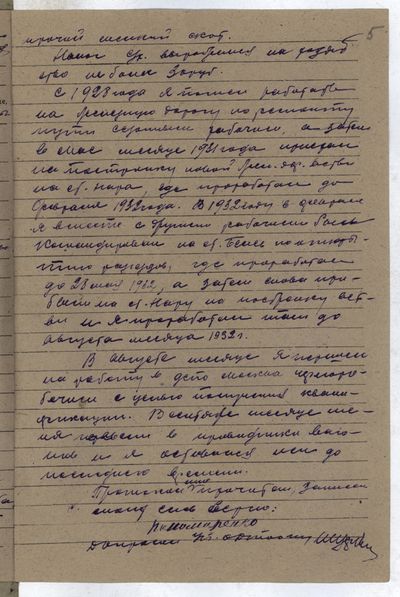 прочий мелкий скот.
Налог с/х. выражался на
не более 30 руб.
С 1928 года я пошел работать
на железную дорогу по ремонту
пути сезонным рабочим, а затем
в мае месяце 1931 года приехал
на постройку новой жел. дор. ветви
на ст. Нара, где проработал до
февраля 1932 года. В 1932 году в феврале
я вместе с другими рабочими был
командирован на ст.
разъездов, где проработал
до 28 мая 1932, а затем снова при-
был на ст. Нару на постройку вет-
ви и я проработал там до
августа месяца 1932 г.
В августе месяце я перешел
на работу в депо Москва чернора-
бочим с целью получения квали-
фикации. В октябре месяце ме-
ня перевели в проводники ваго-
нов и я оставался им до
последнего времени.
Протокол мне прочитан, записан
с моих слов верно:
Пономаренко
допросил